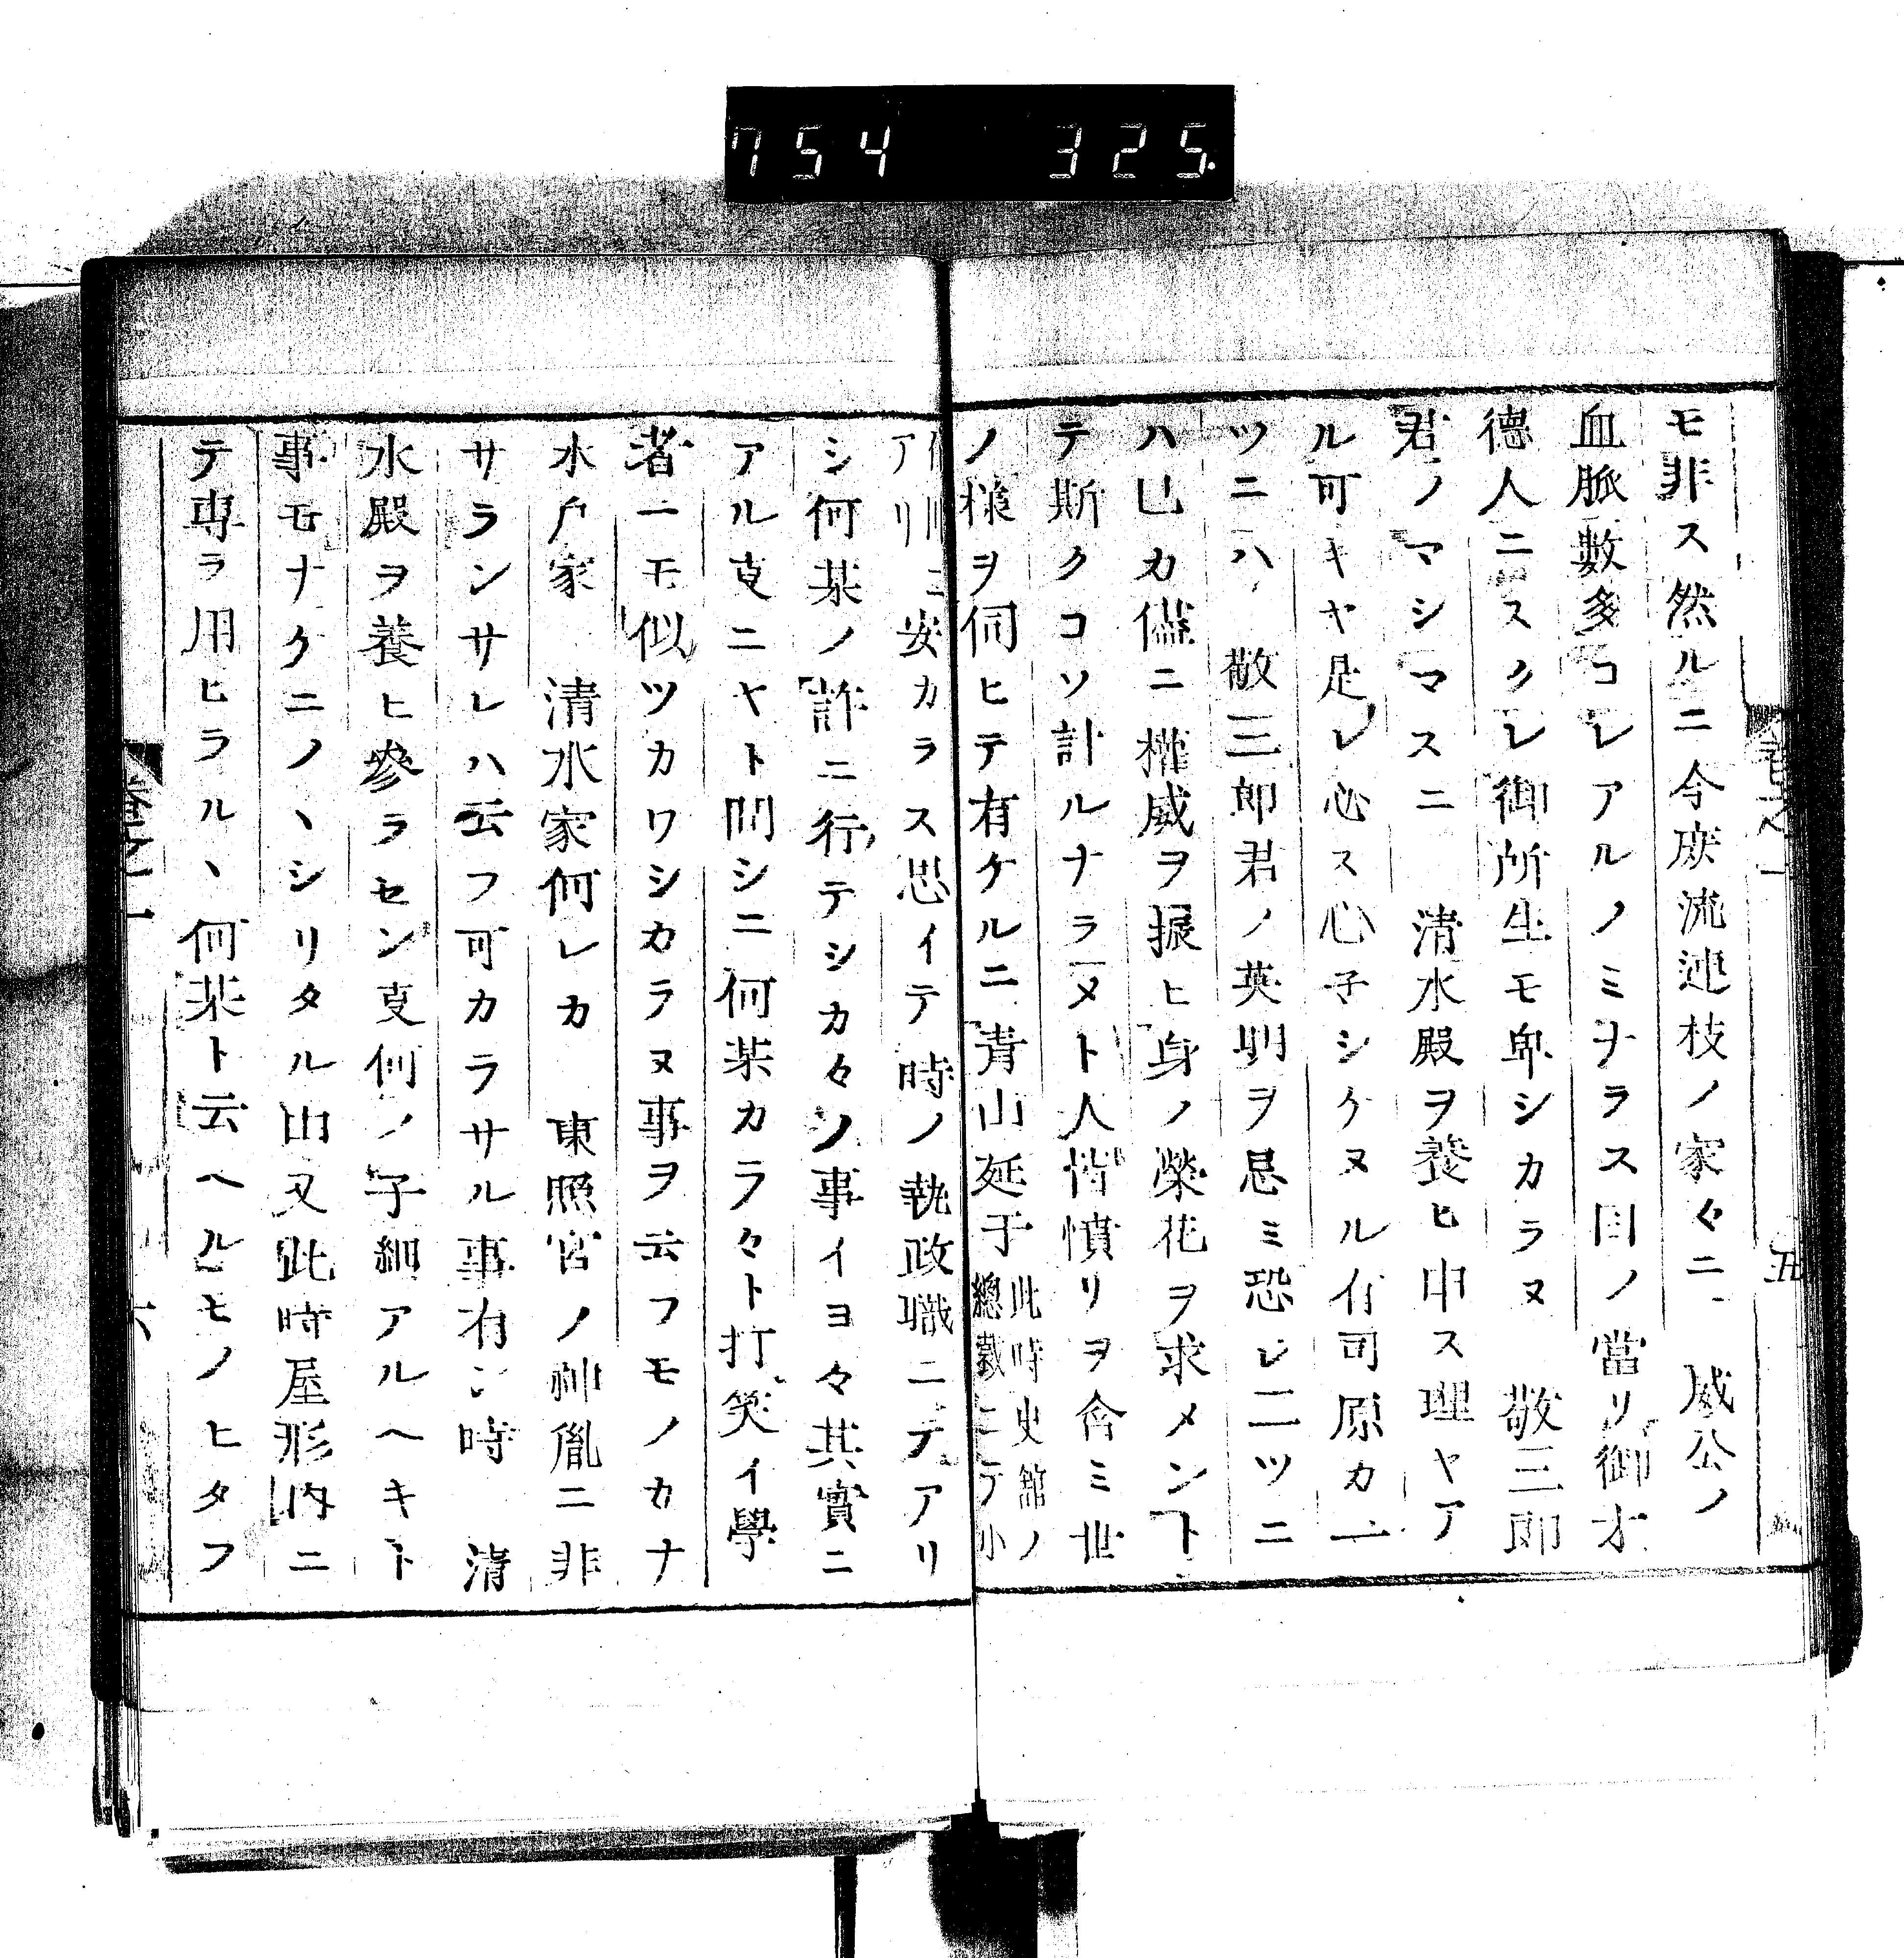 754 325
モ非ス然ルニ今庶流連枝ノ家々ニ 威公ノ
血脈數多コレアルノミナラス目ノ當リ御才
德人ニスクレ御所生モ卑シカラヌ 敬三郎
君ノマシマスニ 清水殿ヲ養ヒ申ス理ヤア
ル可キヤ是レ必ス心子シケヌル有司原カ一
ツニハ 敬三郎君ノ英明ヲ忌ミ恐レ二ツニ
ハ己カ儘ニ權威ヲ振ヒ身ノ榮花ヲ求メント
テ斯クコソ計ルナラメト人皆憤リヲ含ミ世
ノ樣ヲ伺ヒテ有ケルニ青山延于此時史館ノ總裁ニテ小
アリ 安カラス思イテ時ノ執政職ニテアリ
シ何某ノ許ニ行テシカ々ソノ事イヨ々其實ニ
アル支ニヤト問シニ何某カラ々ト打笑イ學
者ニモ似ツカワシカラヌ事ヲ云フモノカナ
水戸家 清水家何レカ 東照宮ノ神胤ニ非
サランサレハ云フ可カラサル事有ン時 清
水殿ヲ養ヒ參ラセン支何ノ子細アルヘキト
事モナケニノヽシリタル由又此時屋形内ニ
テ專ラ用ヒラルヽ何某ト云ヘルモノヒタフ
五